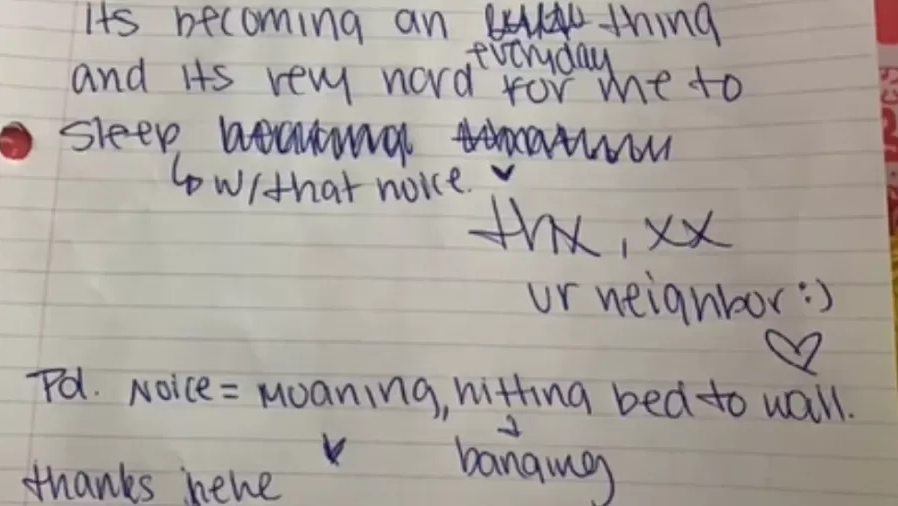 its becoming an thing
everyday
and its very hard for me to
sleep
↳ w/that noice.
thx, xx
ur neighbor :)
♡
Pd. Noice = Moaning, hitting bed to wall.
banging
thanks hehe